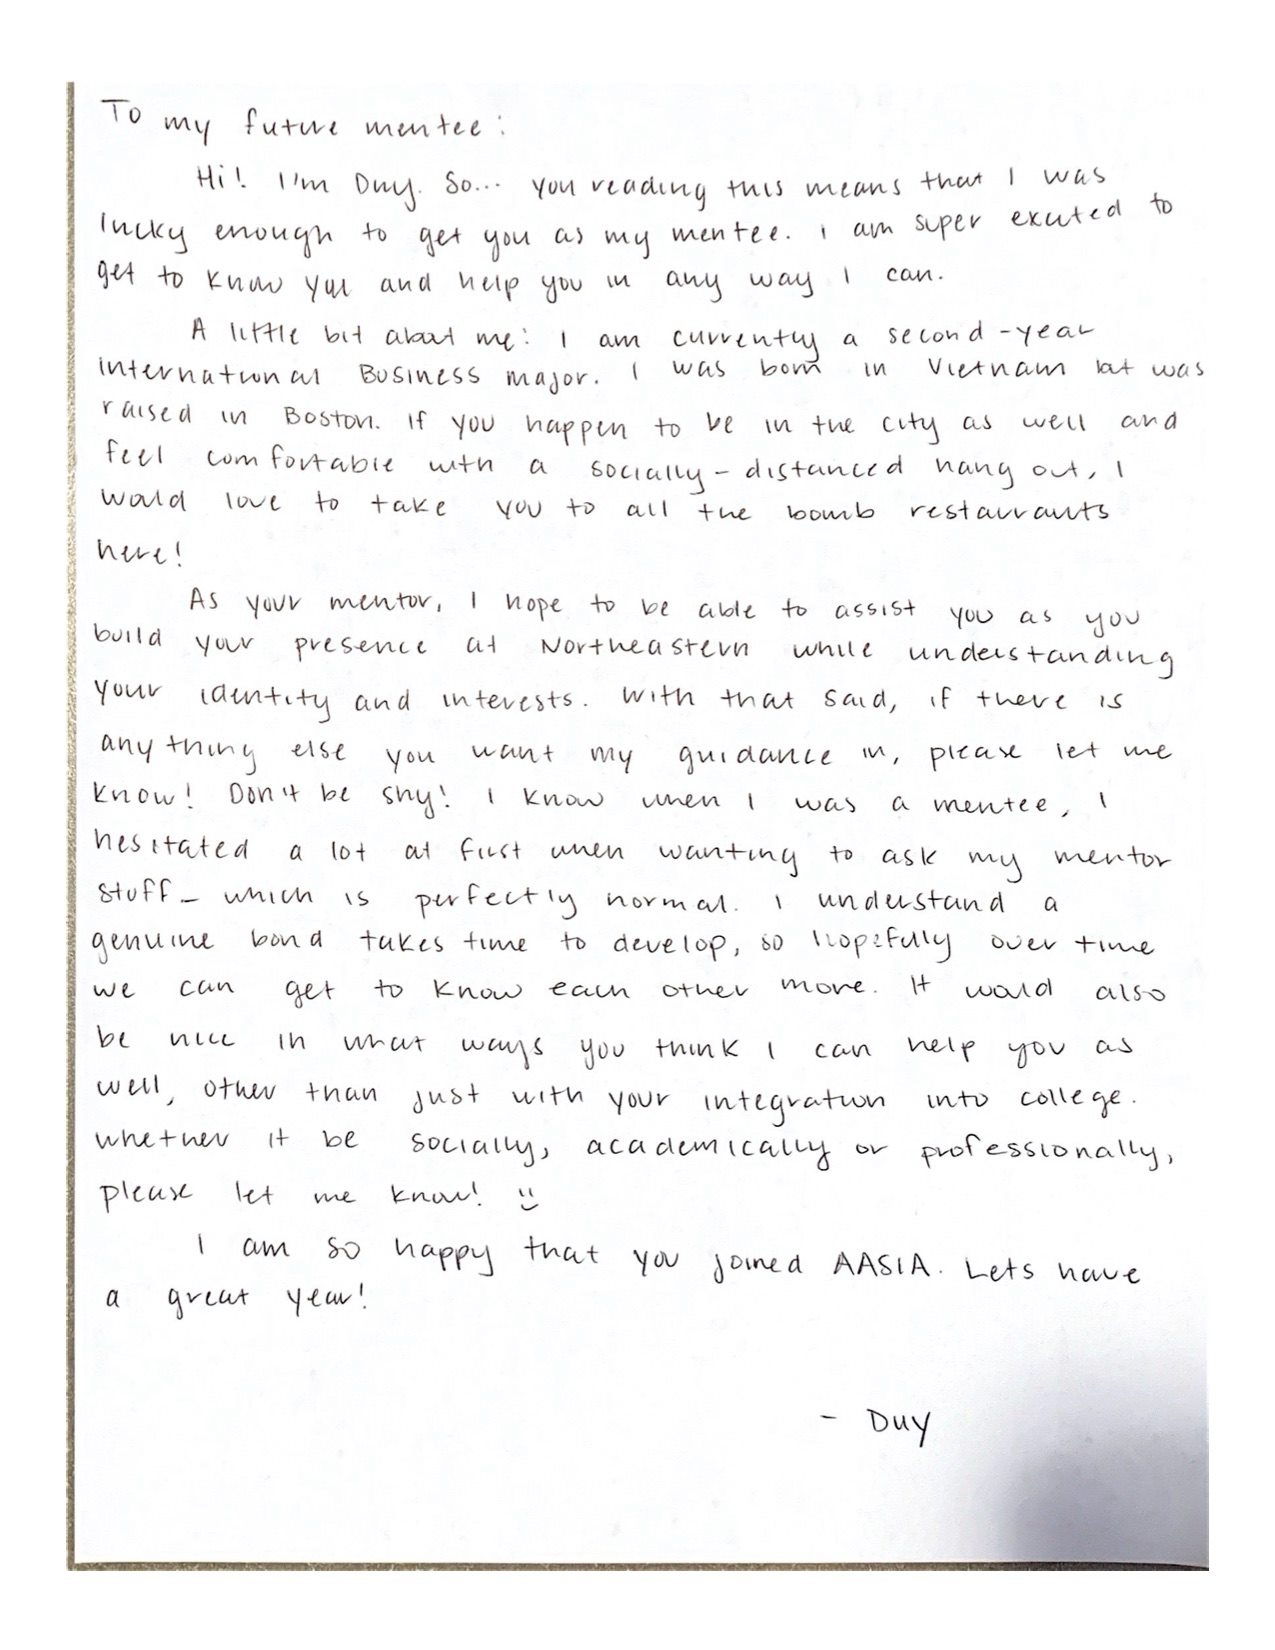 To my future mentee:
Hi! I'm Duy. So... you reading this means that I was
lucky enough to get you as my mentee. I am super excited to
get to know you and help you in any way I can.
A little bit about me: I am currently a second-year
International Business major. I was born in Vietnam but was
raised in Boston. If you happen to be in the city as well and
feel comfortable with a socially-distanced hang out, I
would love to take you to all the bomb restaurants
here!
As your mentor, I hope to be able to assist you as you
build your presence at Northeastern while understanding
your identity and interests. With that said, if there is
anything else you want my guidance in, please let me
know! Don't be shy! I know when I was a mentee, I
hesitated a lot at first when wanting to ask my mentor
stuff - which is perfectly normal. I understand a
genuine bond takes time to develop, so hopefully over time
we can get to know each other more. It would also
be nice in what ways you think I can help you as
well, other than just with your integration into college.
Whether it be socially, academically or professionally,
please let me know! :)
I am so happy that you joined AASIA. Lets have
a great year!
- Duy